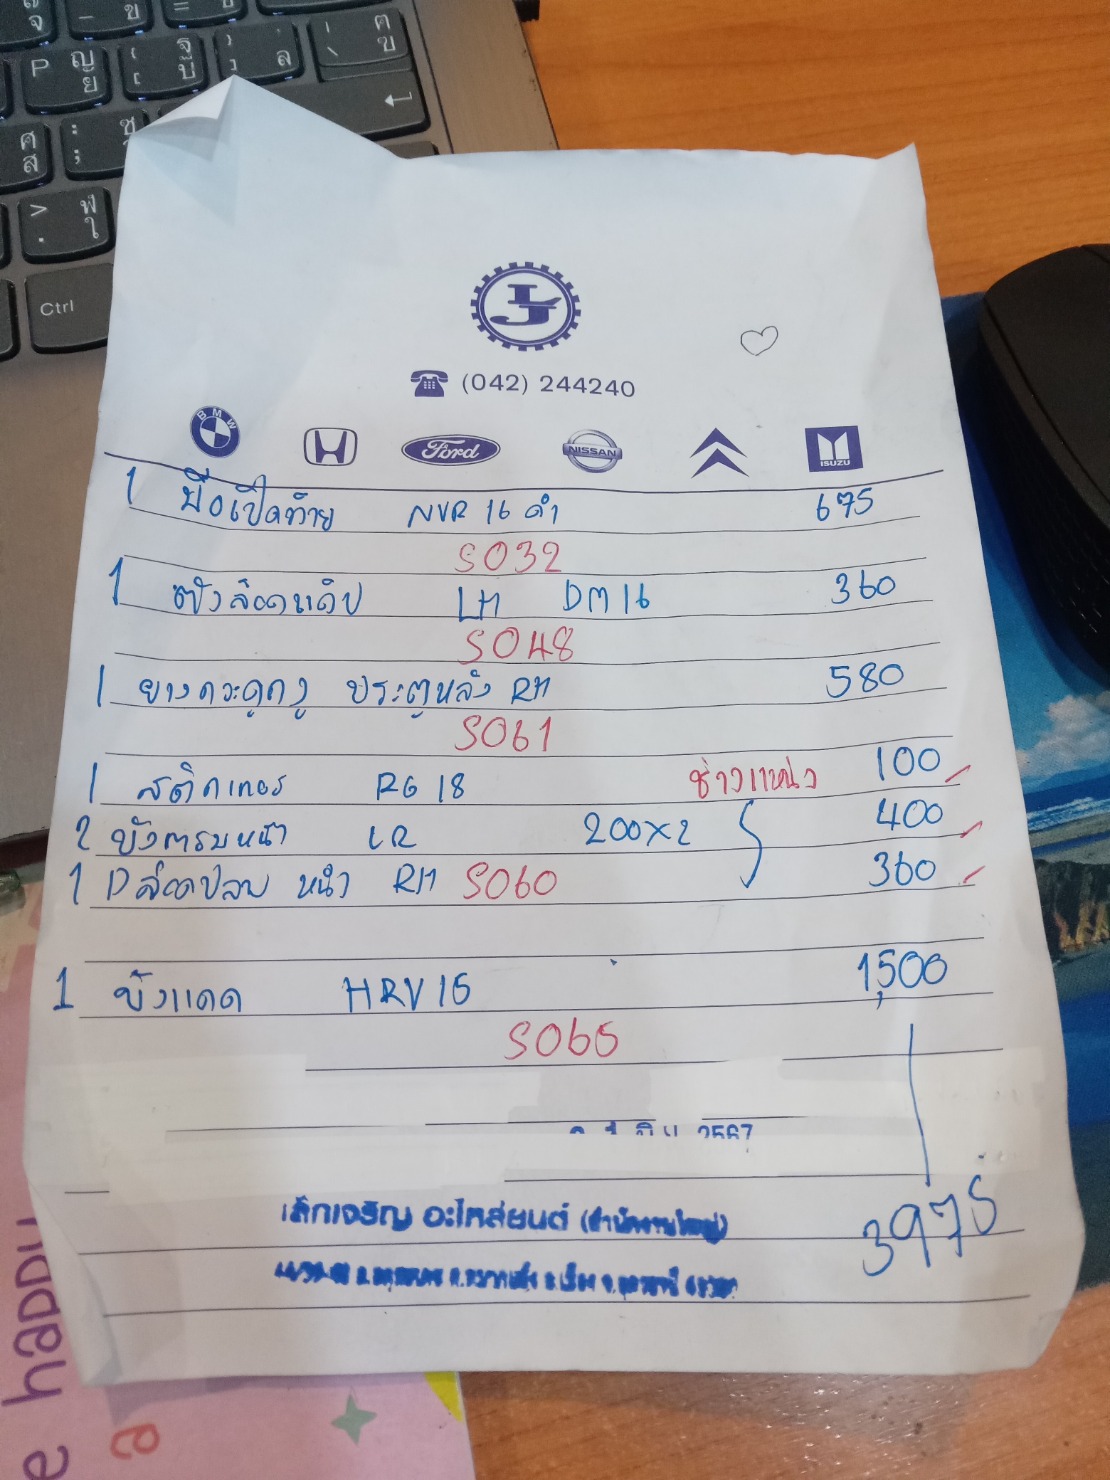 P ญ ย
Ctrl
(042) 244240
BMW
Ford
NISSAN
ISUZU
1 มือเปิดท้าย NVR 16 ดำ 675
S032
1 LH DM16 360
S048
1 ยางกระดูกงู ประตูหลัง RH 580
S061
1 สติกเกอร์ RG 18 ช่างแหน่ง 100
2 บังตรมหน้า LR 200x2 400
1 หน้า RH S060 360
1 บังแดด HRV15 1,500
S065
2567
3975
เล็กเจริญ อะไหล่ยนต์ (สำนักงานใหญ่)
e happy
a